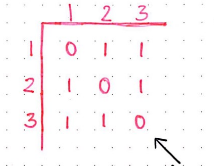 1 2 3
1 0 1 1
2 1 0 1
3 1 1 0